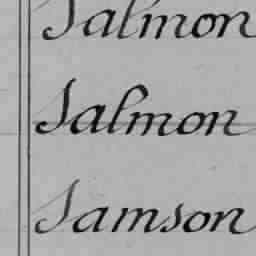 Salmon
Salmon
Samson